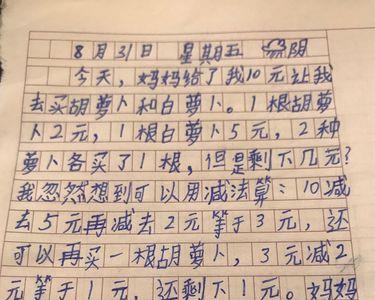 8月31日 星期五 多阴
今天,妈妈给了我10元让我
去买胡萝卜和白萝卜。1根胡萝
卜2元,1根白萝卜5元,2种
萝卜各买了1根,但是剩下几元?
我忽然想到可以用减法算:10减
去5元再减去2元等于3元,还
可以再买一根胡萝卜,3元减2
元等于1元,还剩下1元。妈妈